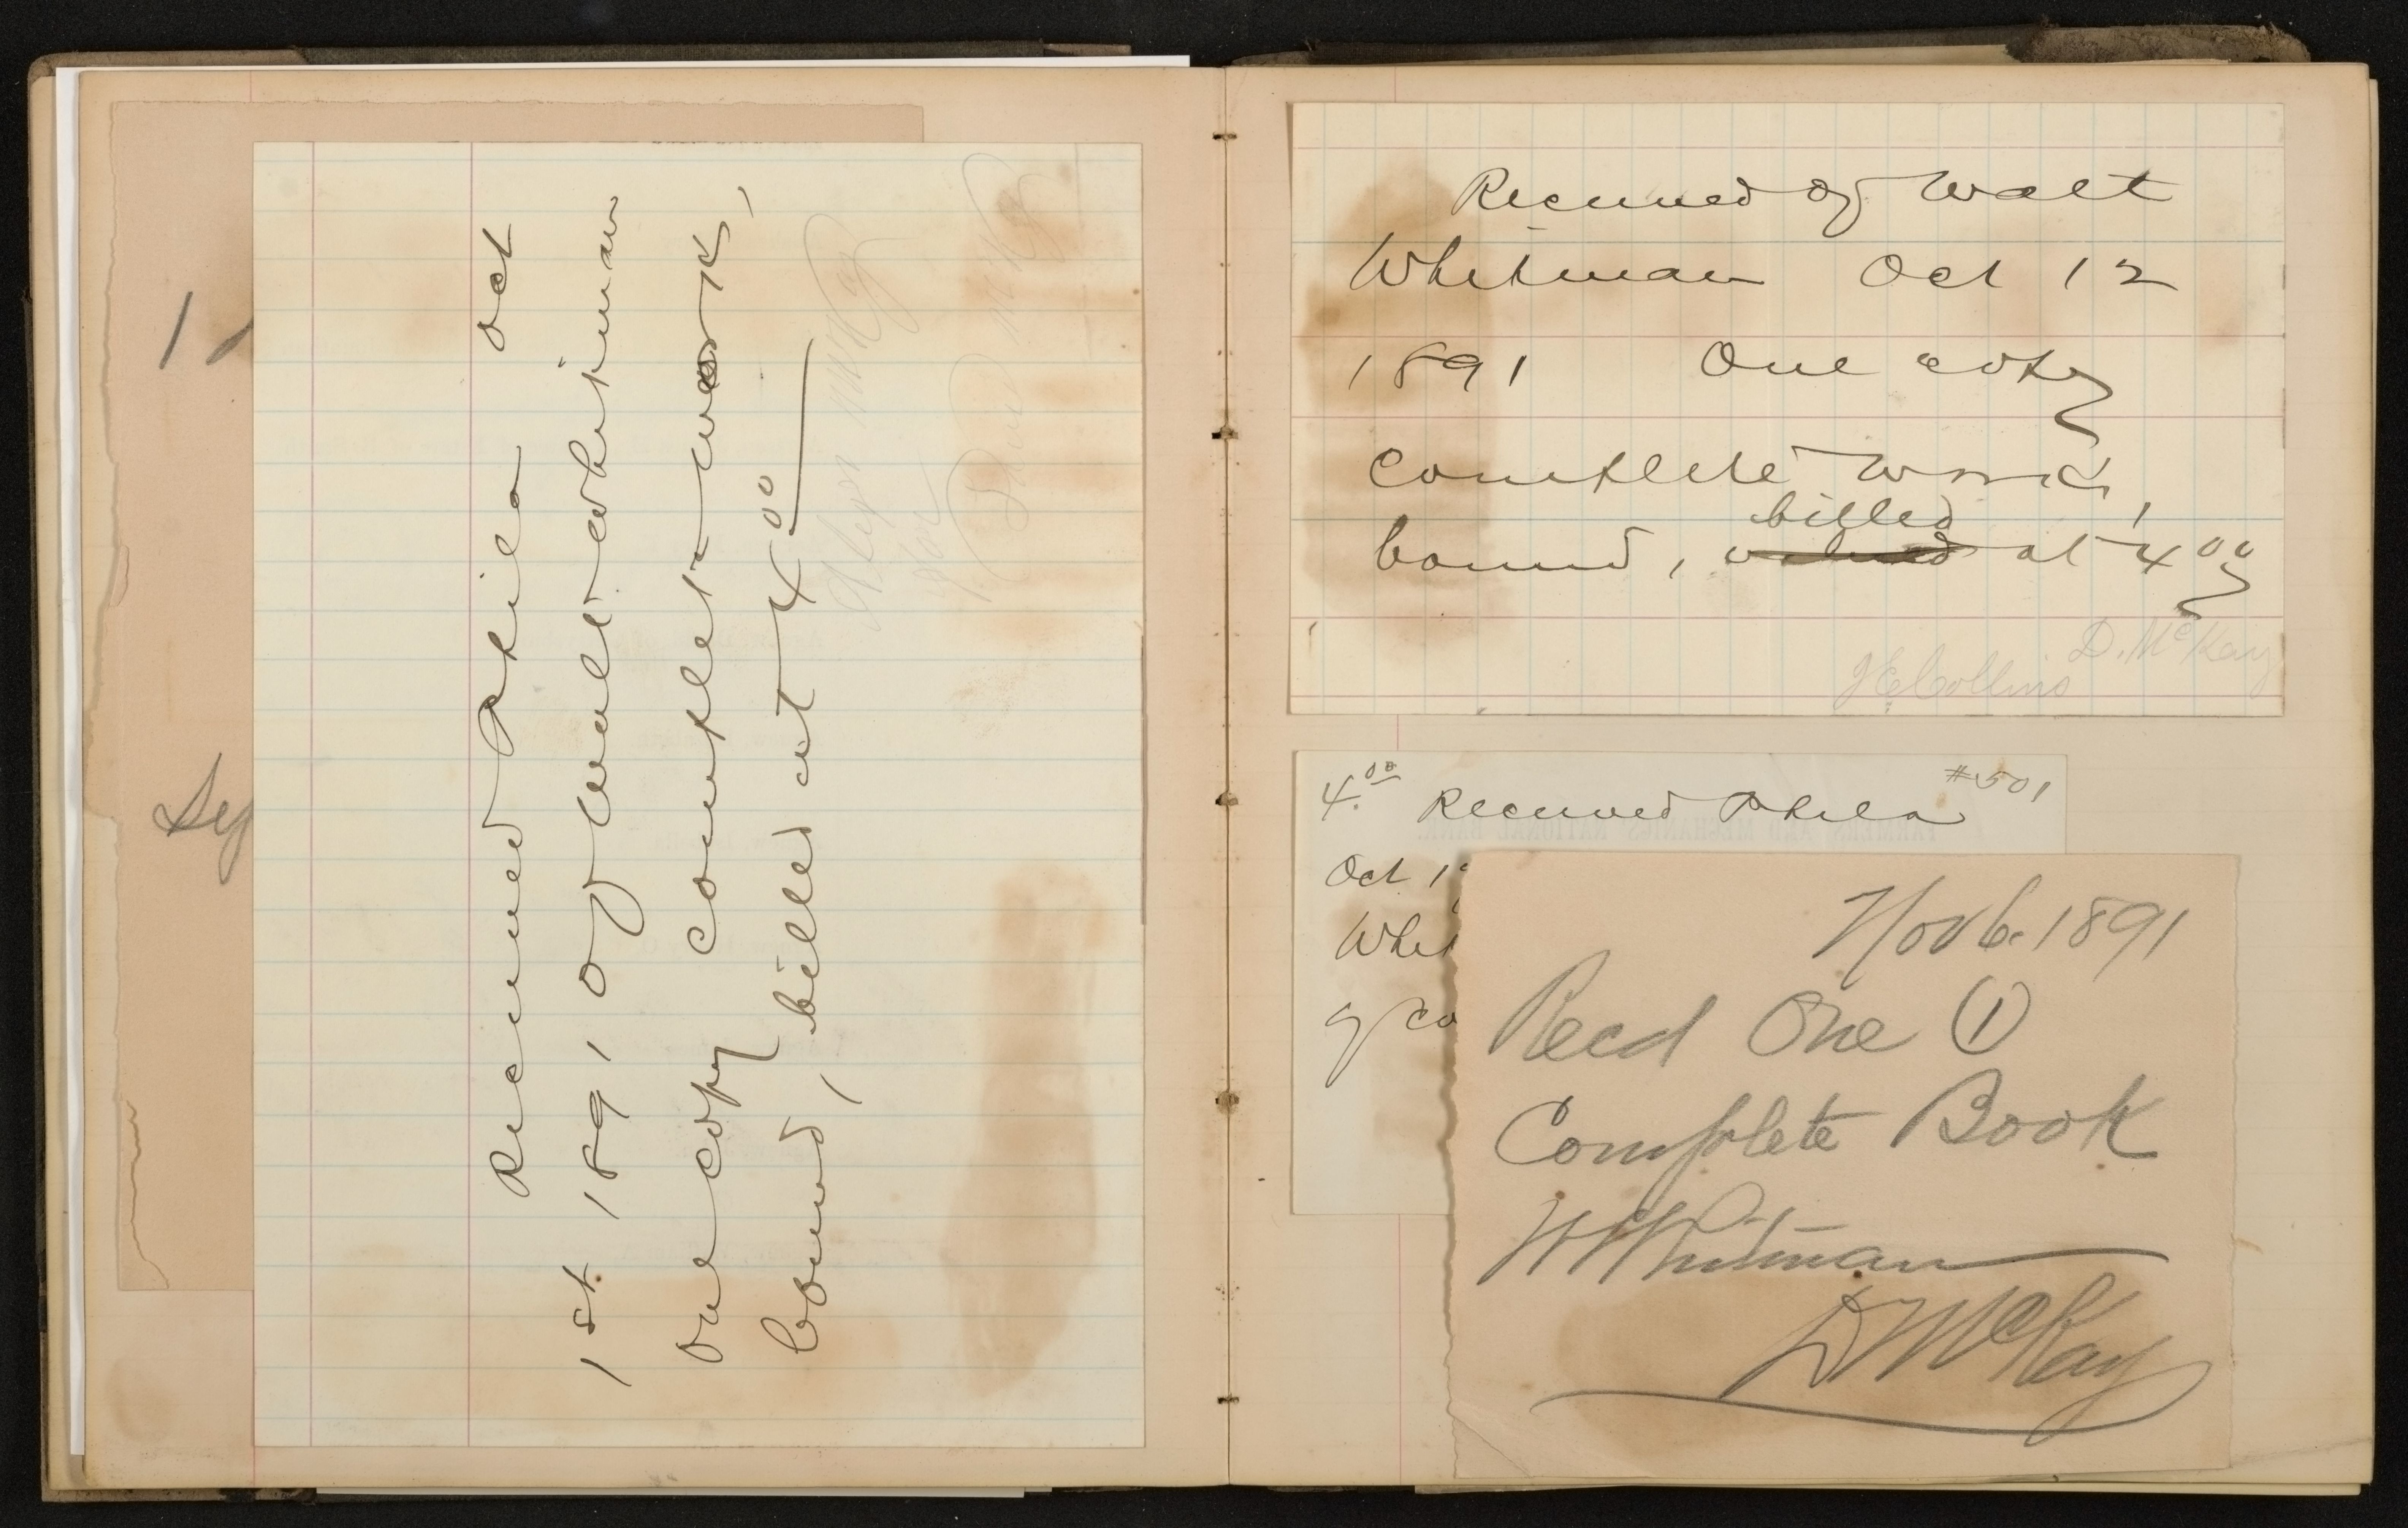 Received Phila Oct
1st 1891 of Walt Whitman
one copy complete work,
bound, billed at 4 00
David McKay
1
Sep
Received of Walt
Whitman Oct 12
1891 One copy
complete work,
billed
bound, valued at 4 00
D. McKay
JE Collins
4.00 #501
Received Phila
Oct 1
Whit
g co
Nov 6. 1891
Recd One (1)
Complete Book
W Whitman
D McKay